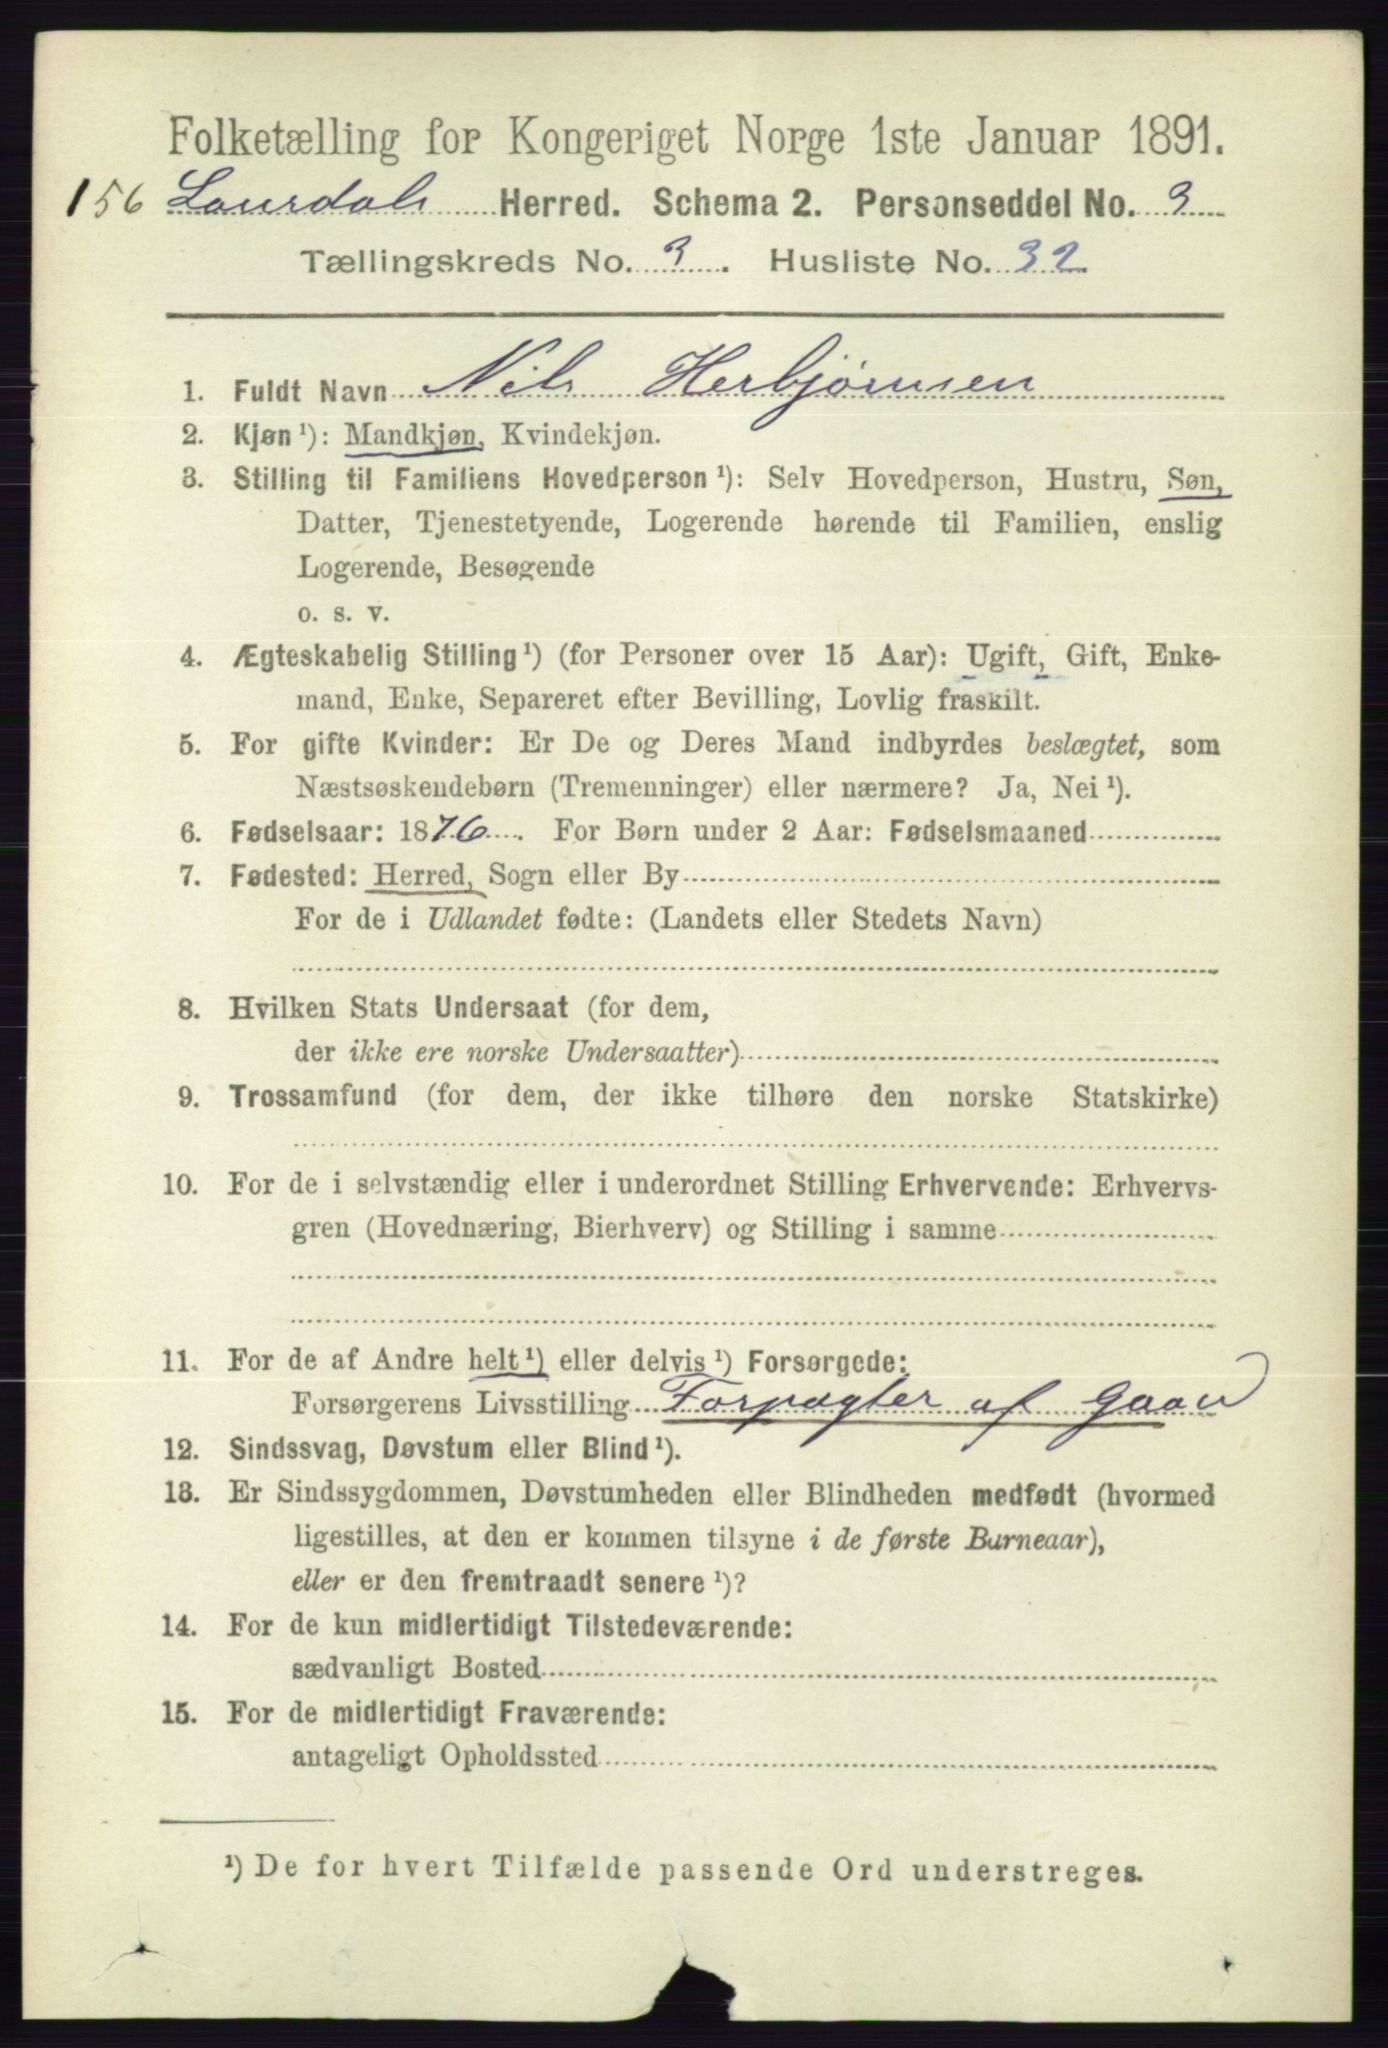 Folketælling for Kongeriget Norge 1ste Januar 1891.
156 Laurdals Herred. Schema 2. Personseddel No. 3
Tællingskreds No. 3. Husliste No. 32
1. Fuldt Navn Nils Herbjørnsen
2. Kjøn ¹): Mandkjøn, Kvindekjøn.
3. Stilling til Familiens Hovedperson ¹): Selv Hovedperson, Hustru, Søn,
Datter, Tjenestetyende, Logerende hørende til Familien, enslig
Logerende, Besøgende
o. s. v.
4. Ægteskabelig Stilling ¹) (for Personer over 15 Aar): Ugift, Gift, Enke-
mand, Enke, Separeret efter Bevilling, Lovlig fraskilt.
5. For gifte Kvinder: Er De og Deres Mand indbyrdes beslægtet, som
Næstsøskendebørn (Tremenninger) eller nærmere? Ja, Nei ¹).
6. Fødselsaar: 1876. For Børn under 2 Aar: Fødselsmaaned
7. Fødested: Herred, Sogn eller By
For de i Udlandet fødte: (Landets eller Stedets Navn)
8. Hvilken Stats Undersaat (for dem,
der ikke ere norske Undersaatter)
9. Trossamfund (for dem, der ikke tilhøre den norske Statskirke)
10. For de i selvstændig eller i underordnet Stilling Erhvervende: Erhvervs-
gren (Hovednæring, Bierhverv) og Stilling i samme
11. For de af Andre helt ¹) eller delvis ¹) Forsørgede:
Forsørgerens Livsstilling Forpagter af Gaard
12. Sindssvag, Døvstum eller Blind ¹).
13. Er Sindssygdommen, Døvstumheden eller Blindheden medfødt (hvormed
ligestilles, at den er kommen tilsyne i de første Barneaar),
eller er den fremtraadt senere ¹)?
14. For de kun midlertidigt Tilstedeværende:
sædvanligt Bosted
15. For de midlertidigt Fraværende:
antageligt Opholdssted
¹) De for hvert Tilfælde passende Ord understreges.